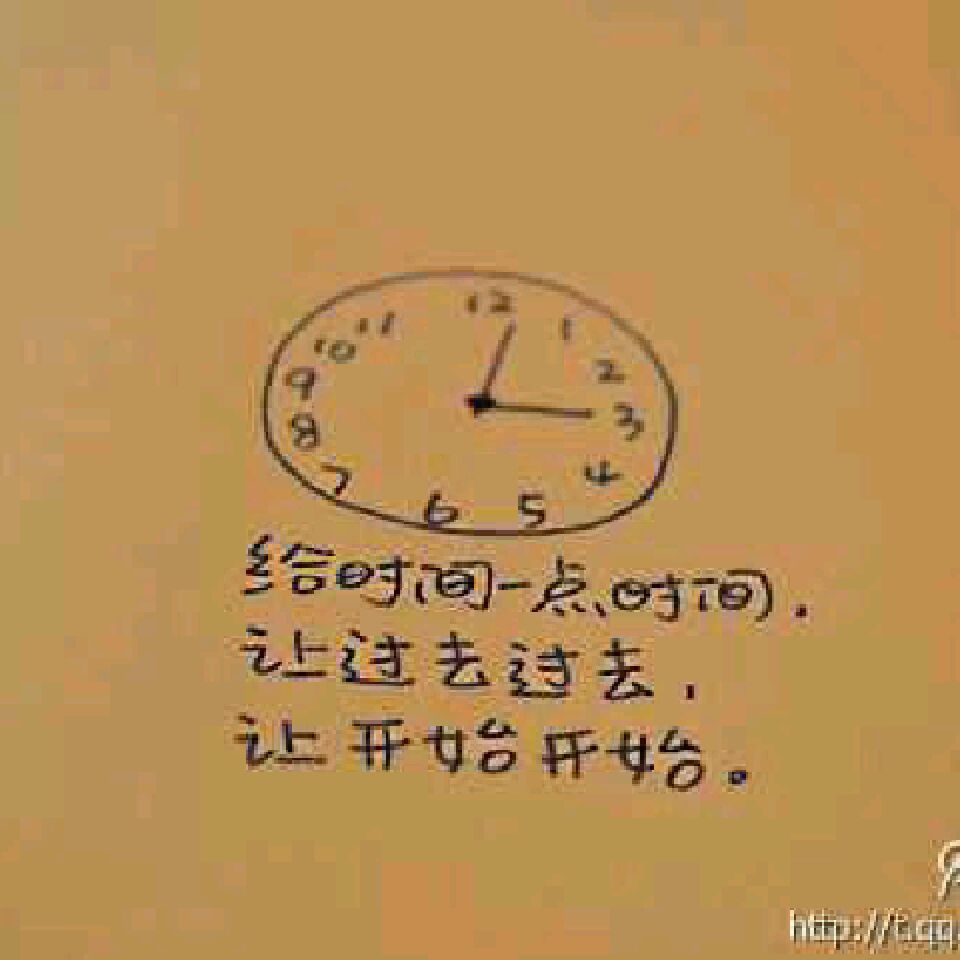 12
11 1
10 2
9 3
8 4
7 5
6
给时间一点时间.
让过去过去.
让开始开始。
http://t.qq.